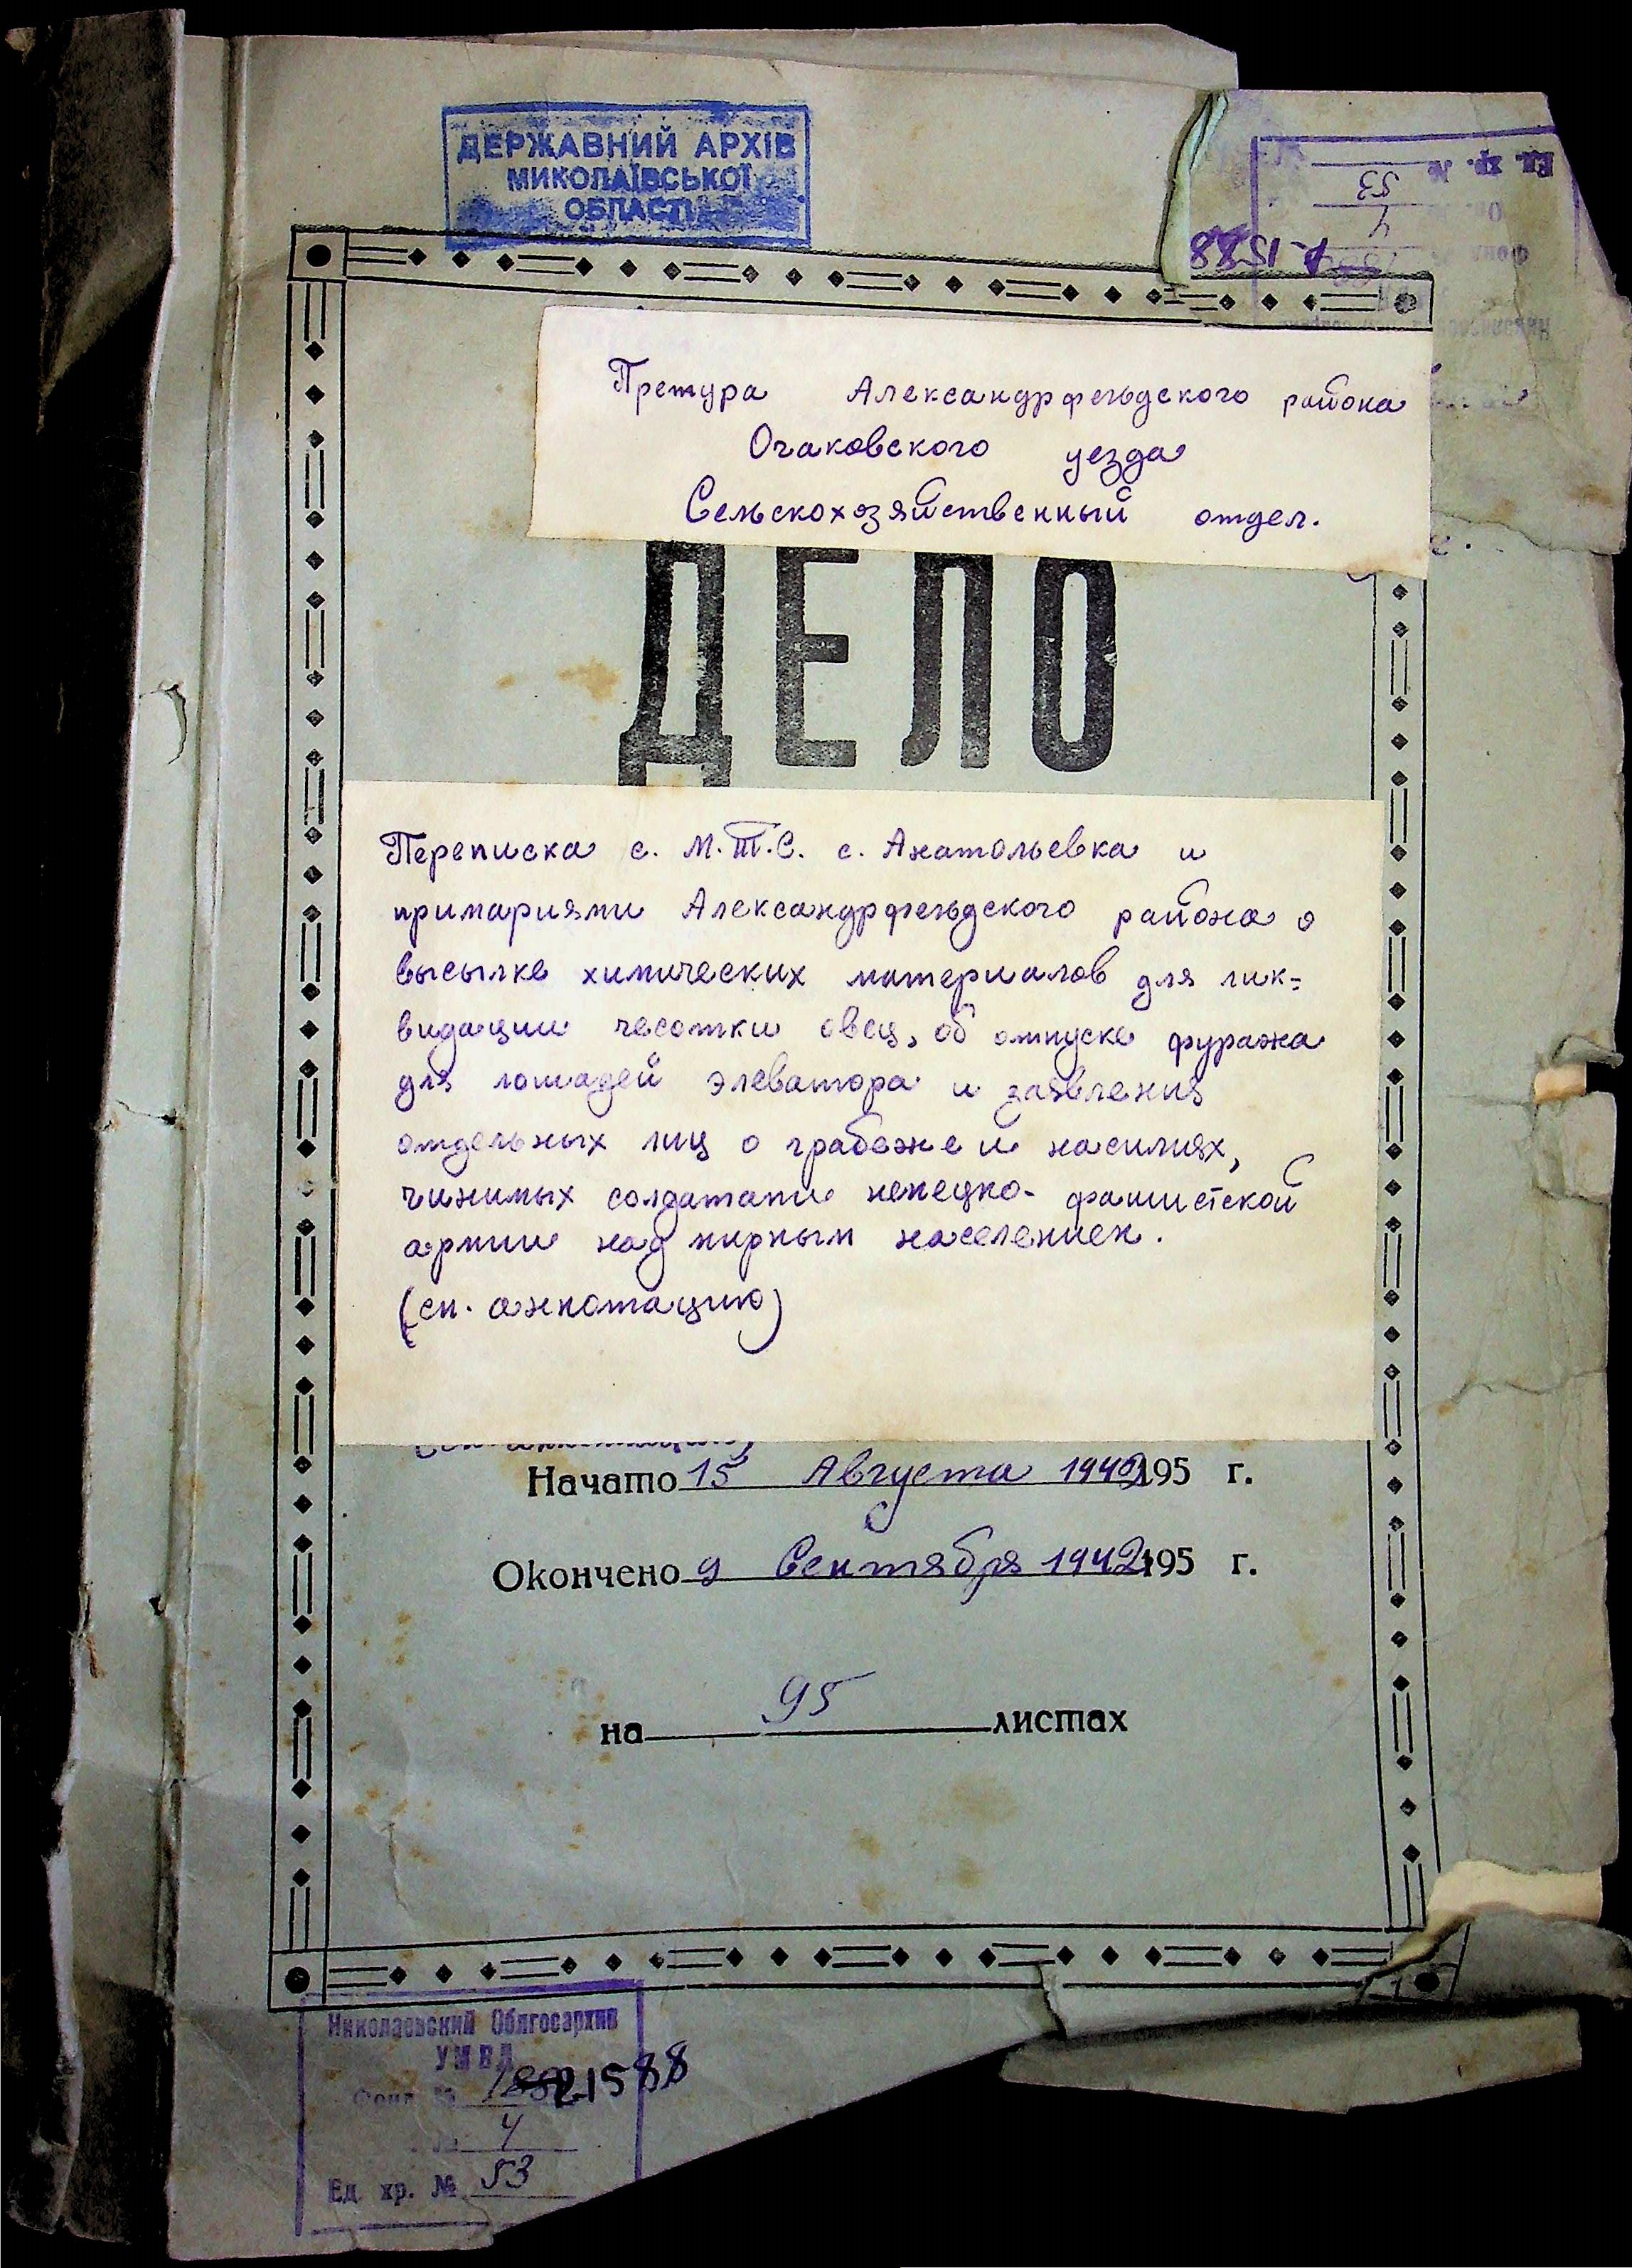 ДЕРЖАВНИЙ АРХІВ
МИКОЛАЇВСЬКОЇ
ОБЛАСТІ
Ед. хр. №
53
Оп.
4
Фонд
Р-1588
Претура Александрфельдского района
Очаковского уезда
Сельскохозяйственный отдел.
ДЕЛО
Переписка с. М.Т.С. с. Анатольевка и
примариями Александрфельдского района о
высылке химических материалов для лик=
видации чесотки овец, об отпуске фуража
для лошадей элеватора и заявления
отдельных лиц о грабеже и насилиях,
чинимых солдатами немецко-фашистской
армии над мирным населением.
(см. аннотацию)
Начато 15 Августа 1942 195 г.
Окончено 9 Сентября 1942 195 г.
на 95 листах
Николаевский Облгосархив
УМВД
Фонд № Р-1588
№ 4
Ед. хр. № 53